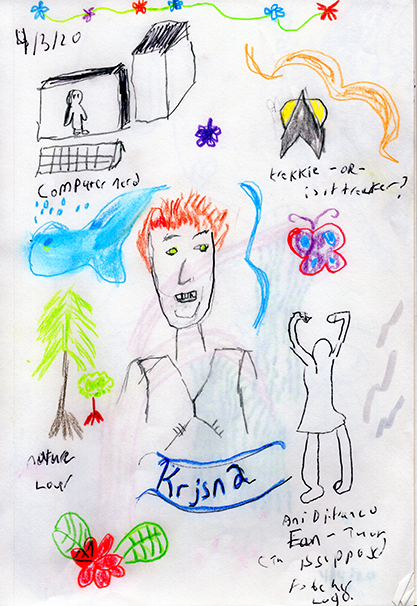 4/3/20
Computer nerd
trekkie -OR-
is it trekker?
nature
Lover
Krjsna
Ani Difranco
Fan -
to be her
Logo.